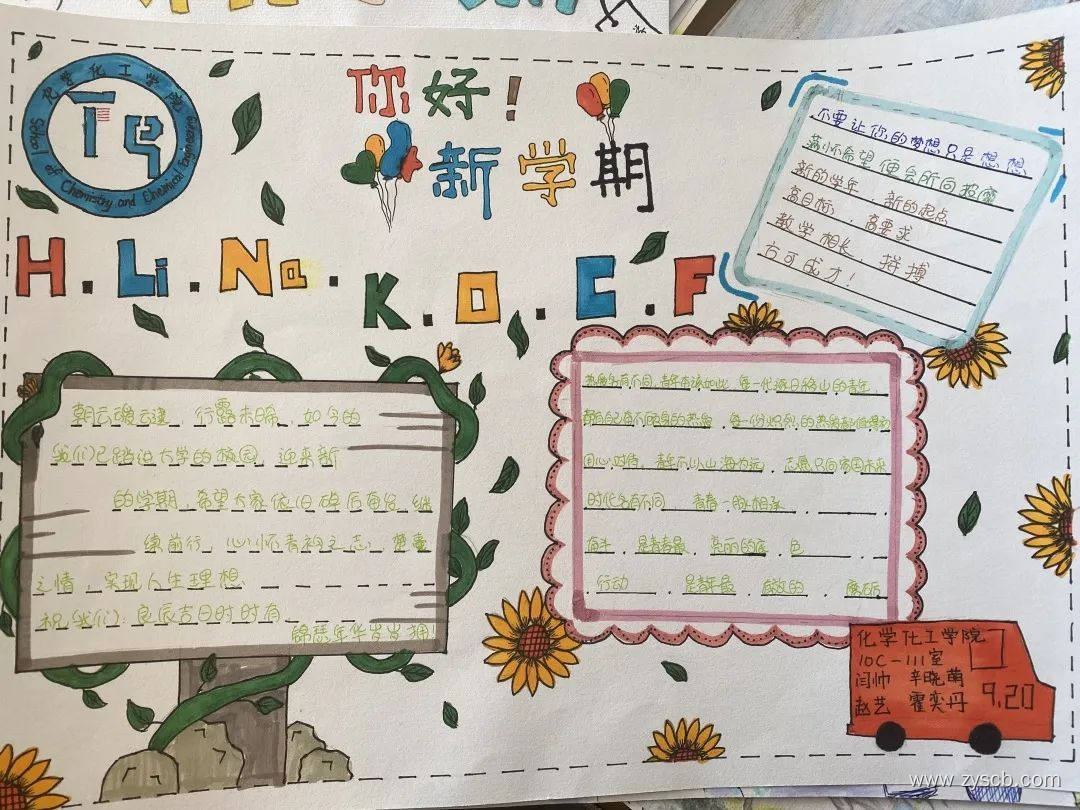 化学化工学院
School of Chemistry and Chemical Engineering
你好！
新学期
H.Li.Na.K.O.C.F
不要让你的梦想只是想想
满怀希望便会所向披靡
新的学年，新的起点
高目标，高要求
教学相长，拼搏
方可成才！
朝云叆叇，行露未晞，如今的
我们已踏进大学的校园，迎来新
的学期，希望大家依旧砥厉奋发，继
续前行，心怀青衿之志，
之情，实现人生理想
祝我们：良辰吉日时时有
锦瑟年华岁岁拥
热爱各有不同，青年本该如此，每一代逐日移山的青年，
都自配有不顾身的热爱，每一份炽烈的热爱都值得
用心对待，青年不以山海为远，志愿只向家国未来
时代各有不同，青春一脉相承
奋斗，是青春最，亮丽的底，色
行动，是青年最，有效的，磨砺
化学化工学院
10C-111室
闫帅 辛晓萌
赵艺 霍奕丹
9.20
www.zyscb.com